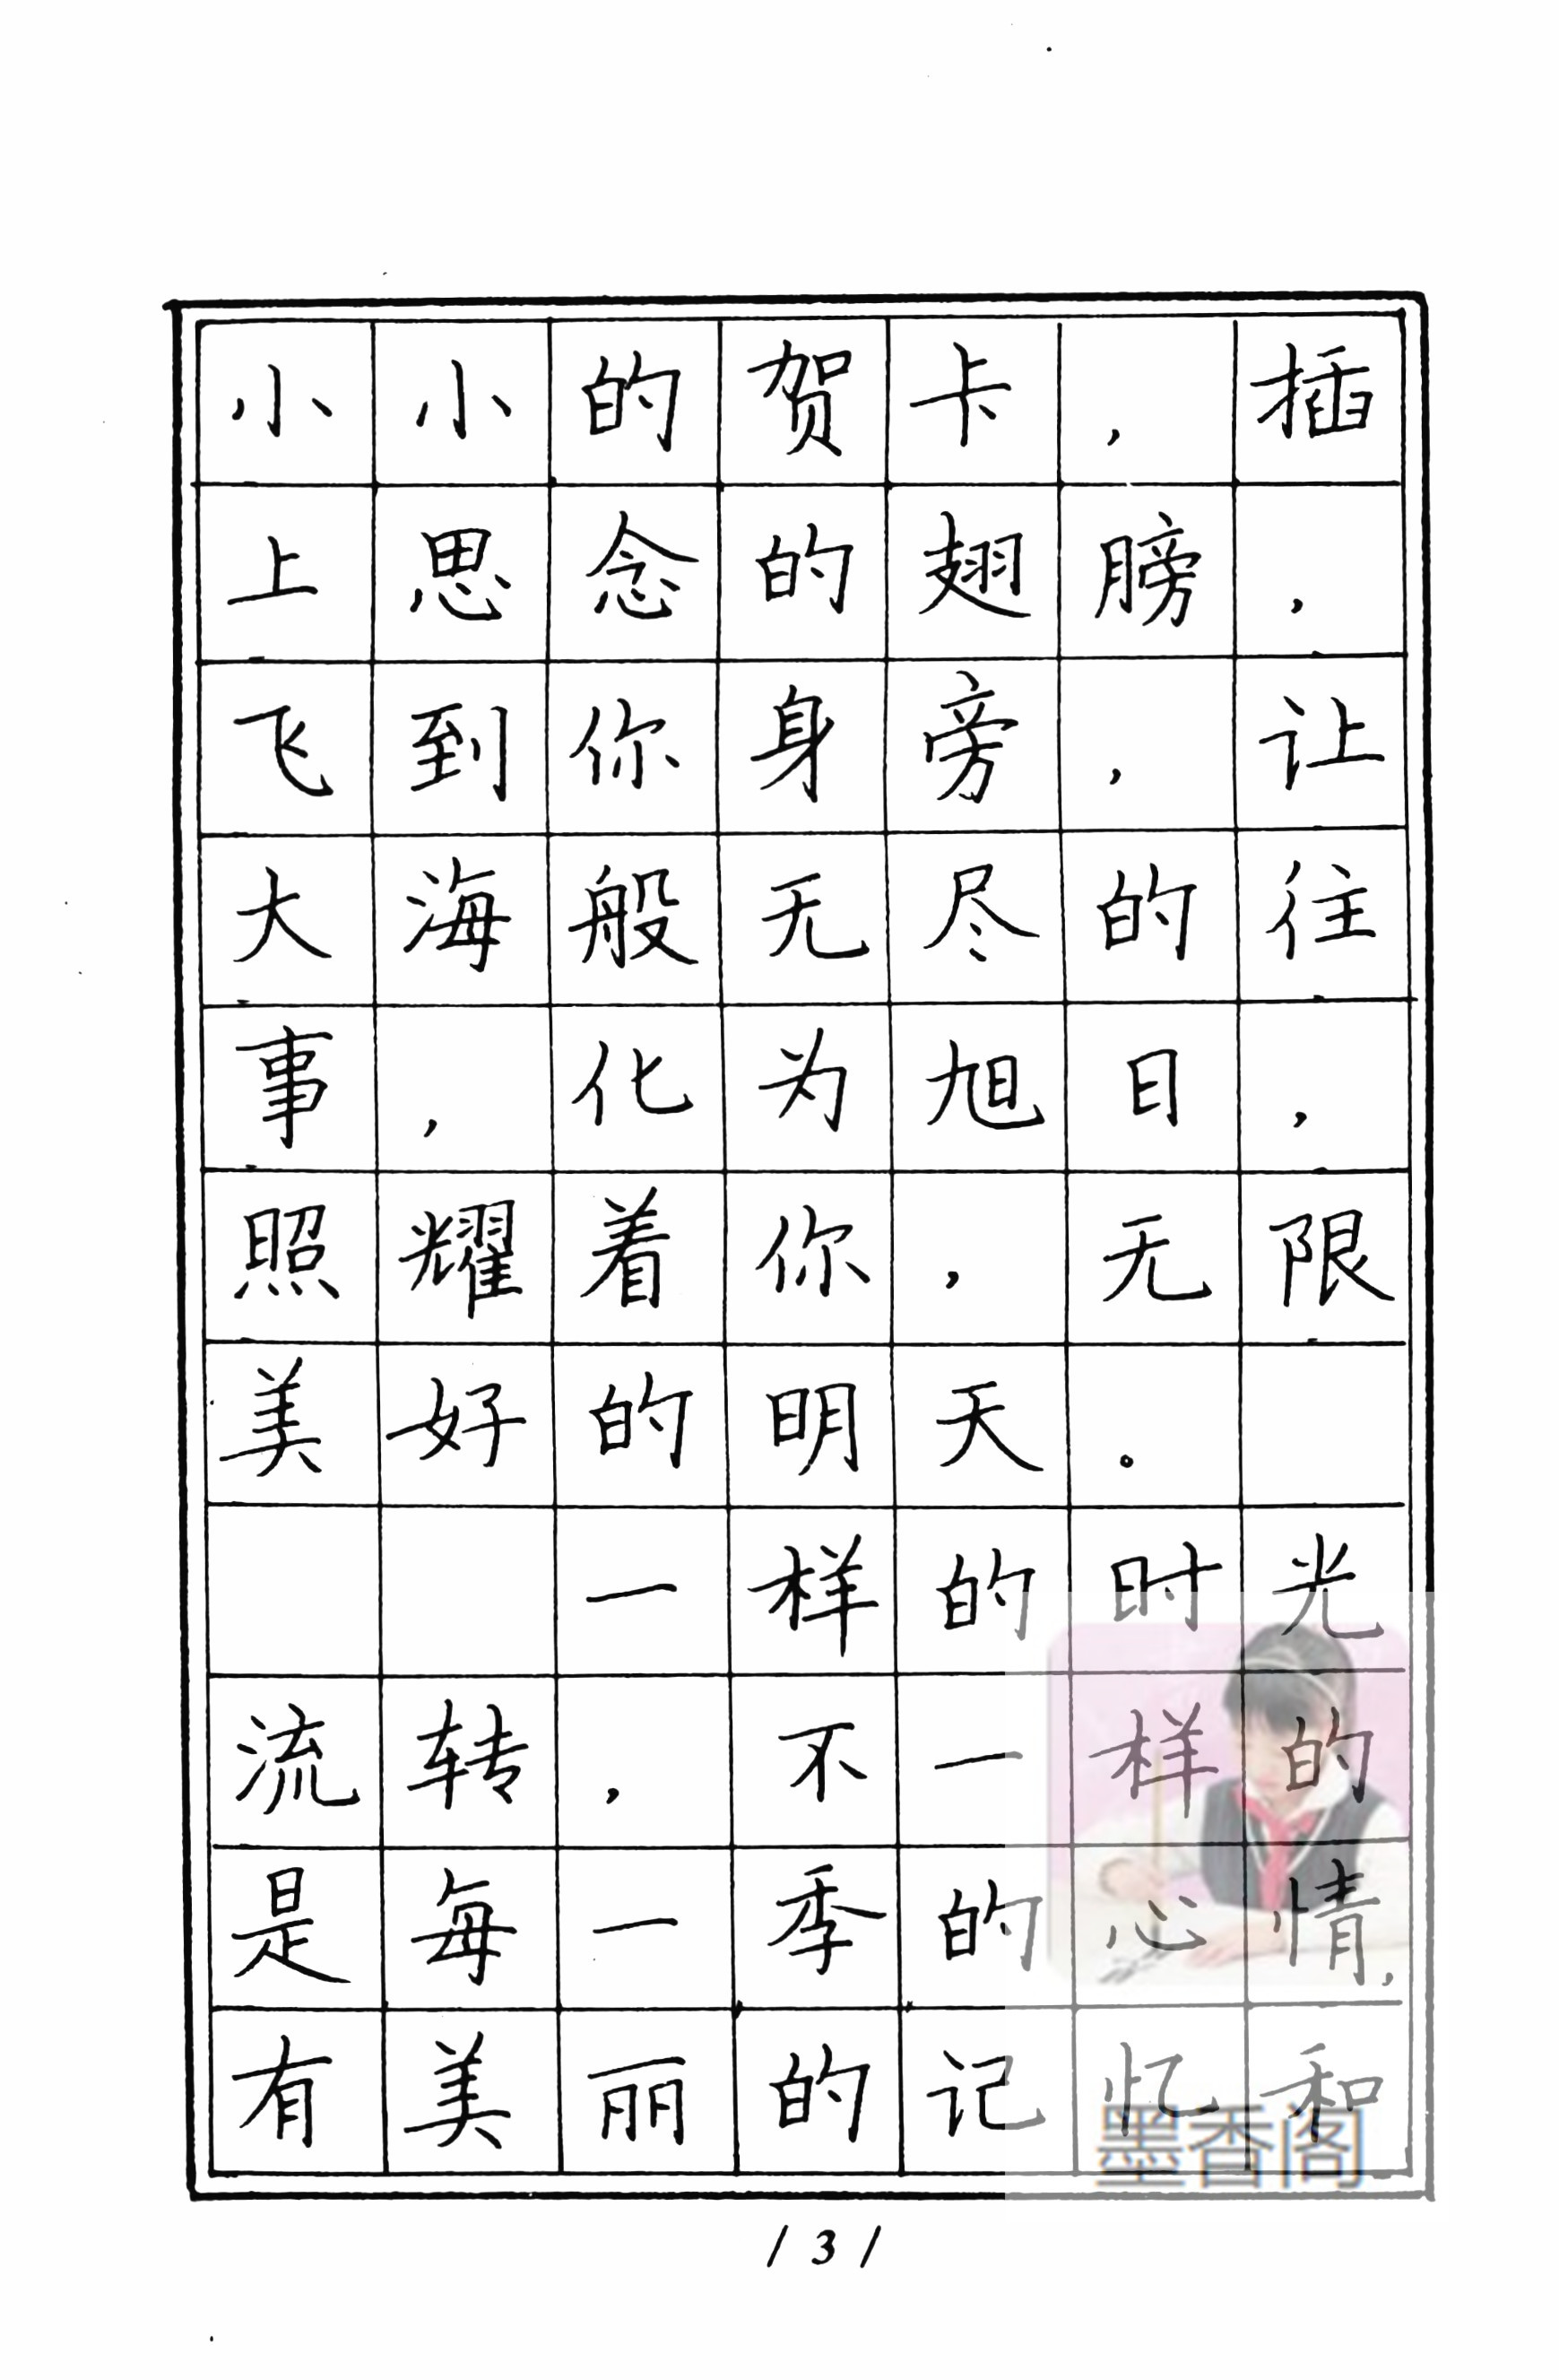 小小的贺卡，插
上思念的翅膀，
飞到你身旁，让
大海般无尽的往
事，化为旭日，
照耀着你，无限
美好的明天。
一样的时光
流转，不一样的
是每一季的心情，
有美丽的记忆和
墨香阁
/3/